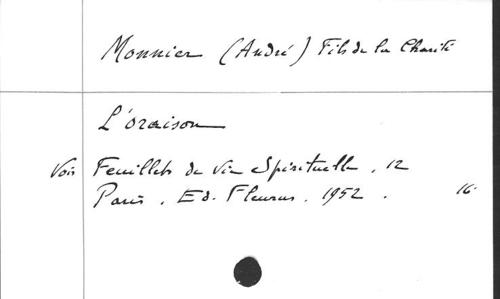 Monnier (André) Fils de la Charité
L'oraison
Vois Feuillets de vie Spirituelle, 12
Paris, Ed. Fleurus, 1952. 16.